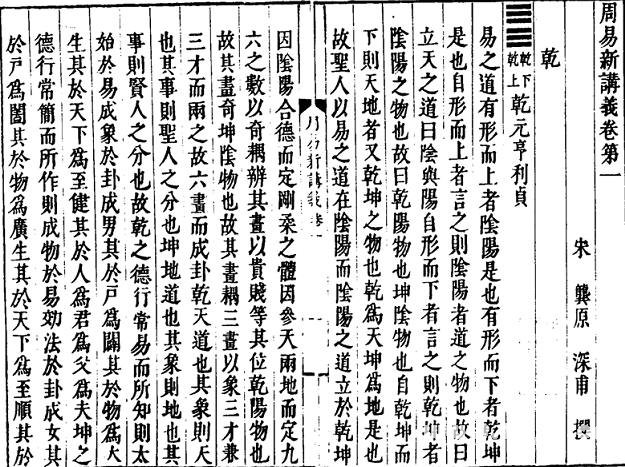 周易新講義卷第一
宋 龔原 深甫 撰
乾
䷀ 乾下乾上 乾元亨利貞
易之道有形而上者陰陽是也有形而下者乾坤
是也自形而上者言之則陰陽者道之物也故曰
立天之道曰陰與陽自形而下者言之則乾坤者
陰陽之物也故曰乾陽物也坤陰物也自乾坤而
下則天地者又乾坤之物也乾爲天坤爲地是也
故聖人以易之道在陰陽而陰陽之道立於乾坤
周易新講義卷一
因陰陽合德而定剛柔之體因參天兩地而定九
六之數以奇耦辨其畫以貴賤等其位乾陽物也
故其畫奇坤陰物也故其畫耦三畫以象三才兼
三才而兩之故六畫而成卦乾天道也其象則天
也其事則聖人之分也坤地道也其象則地也其
事則賢人之分也故乾之德行常易而所知則太
始於易成象於卦成男其於戸爲闢其於物爲大
生其於天下爲至健其於人爲君爲父爲夫坤之
德行常簡而所作則成物於易効法於卦成女其
於戸爲闔其於物爲廣生其於天下爲至順其於